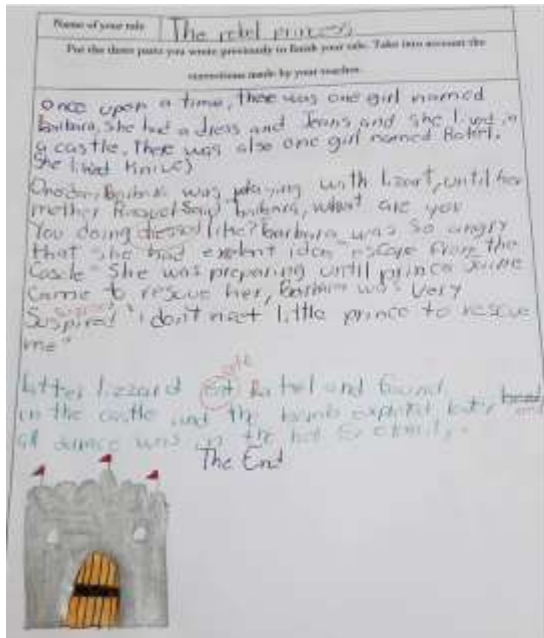 Name of your tale
The rebel princess
Put the three parts you wrote previously to finish your tale. Take into account the
corrections made by your teacher.
Once upon a time, there was one girl named
Barbara, She had a dress and Jeans and she lived in
a castle. There was also one girl named
She liked Knives
One day, Barbara was playing with lizart, until her
mother Raquel Said "barbara, what are you
You doing dressed like? barbara was so angry
that she had exelent idea "escape from the
Castle" She was preparing until prince
Came to rescue her, Barbara was Very
Suspired "i don't neet little prince to rescue
me"
ate
Latter lizzard eat and found
in the castle and the bomb
all was in the
The End